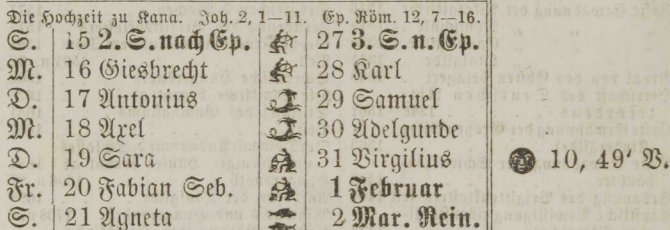 Die Hochzeit zu Kana. Joh. 2, 1—11. Ep. Röm. 12, 7—16.
S. 15 2. S. nach Ep. 27 3. S. n. Ep.
M. 16 Giesbrecht 28 Karl
D. 17 Antonius 29 Samuel
M. 18 Axel 30 Adelgunde
D. 19 Sara 31 Virgilius 10, 49' V.
Fr. 20 Fabian Seb. 1 Februar
S. 21 Agneta 2 Mar. Rein.